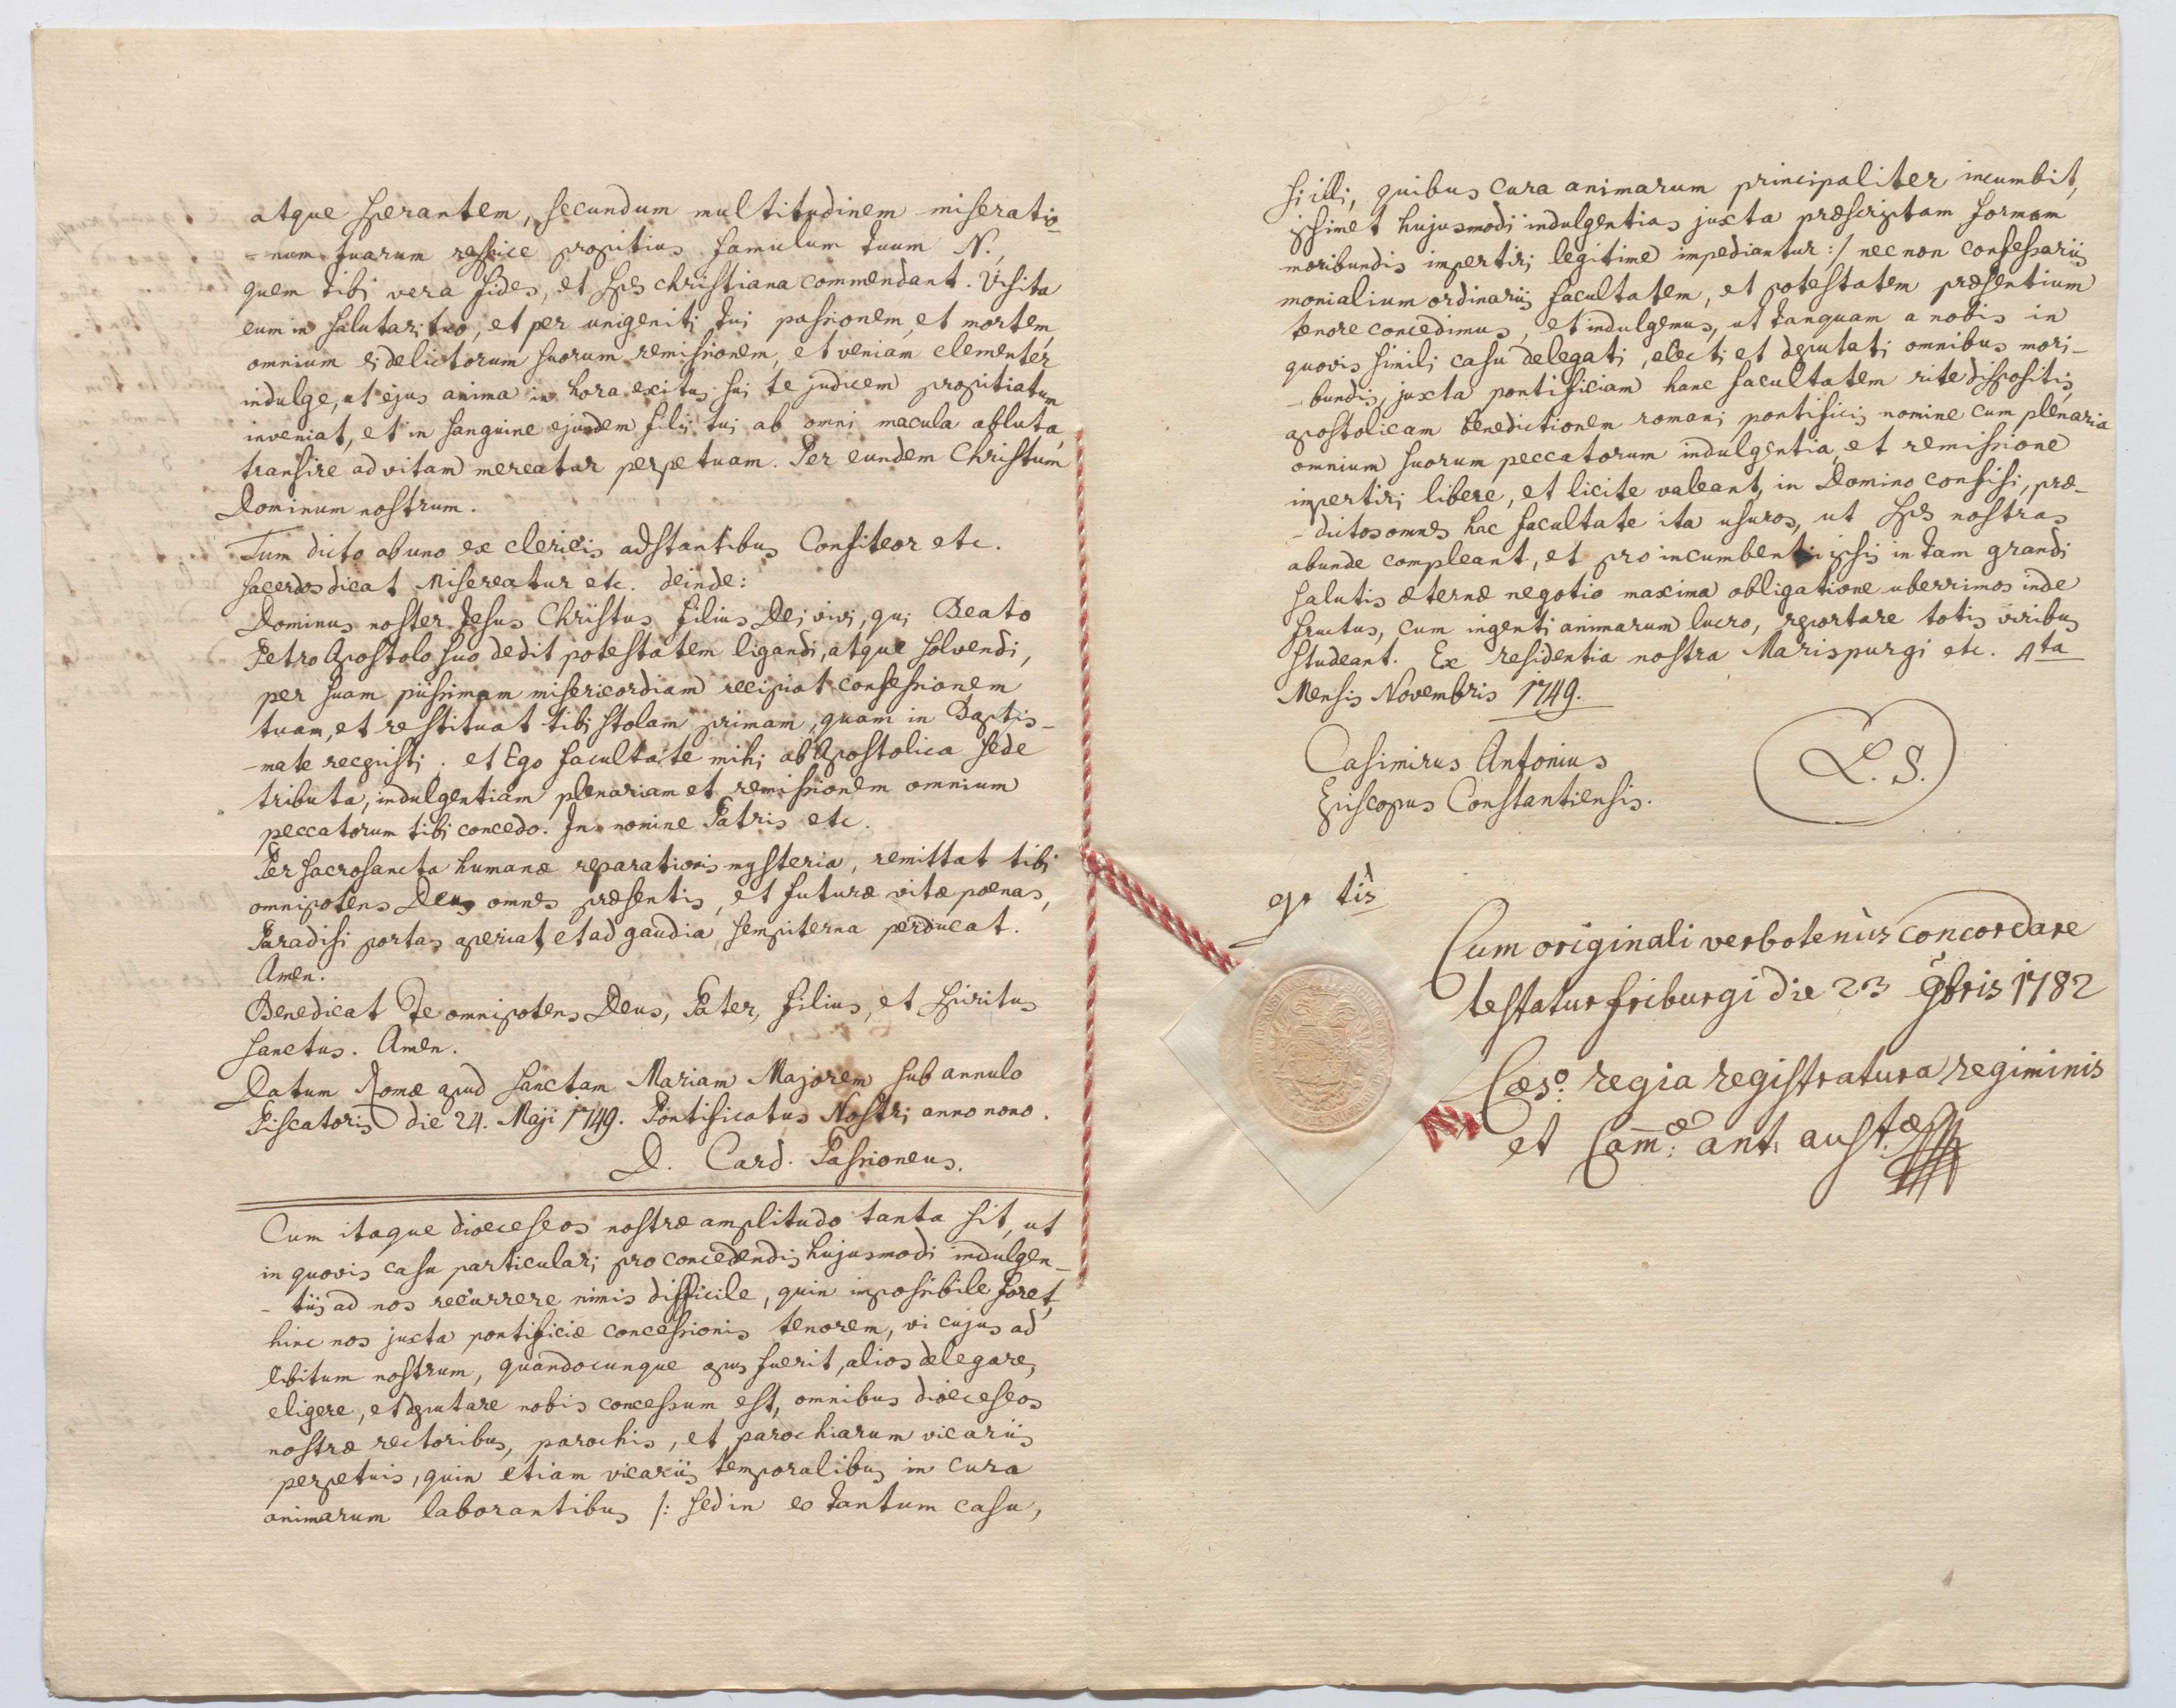 atque sperantem, secundum multitudinem miseratio-
-num tuarum respice propitius famulum tuum N.,
quem tibi vera fides, et spes christiana commendant. Visita
eum in salutari tuo, et per unigeniti tui passionem, et mortem,
omnium ei delictorum suorum remissionem, et veniam clementer
indulge, ut ejus anima in hora exitus sui te judicem propitiatum
inveniat, et in sanguine ejusdem filii tui ab omni macula abluta,
transire ad vitam mereatur perpetuam. Per eundem Christum
Dominum nostrum.
Tum dicto ab uno ex clericis adstantibus Confiteor etc.
sacerdos dicat Misereatur etc. deinde:
Dominus noster Jesus Christus filius Dei vivi, qui Beato
Petro Apostolo suo dedit potestatem ligandi, atque solvendi,
per suam piissimam misericordiam recipiat confessionem
tuam, et restituat tibi stolam primam, quam in Baptis-
-mate recepisti. et Ego facultate mihi ab Apostolica sede
tributa, indulgentiam plenariam et remissionem omnium
peccatorum tibi concedo. In nomine Patris etc.
Per sacrosancta humanæ reparationis mysteria, remittat tibi
omnipotens Deus omnes præsentis, et futuræ vitæ poenas,
Paradisi portas aperiat, et ad gaudia sempiterna perducat.
Amen.
Benedicat Te omnipotens Deus, Pater, filius, et spiritus
sanctus. Amen.
Datum Romæ apud sanctam Mariam Majorem sub annulo
Piscatoris die 24. Maji 1749. Pontificatus Nostri anno nono.
D. Card. Passioneus.
Cum itaque dioeceseos nostræ amplitudo tanta sit, ut
in quovis casu particulari pro concedendis hujusmodi indulgen-
-tiis ad nos recurrere nimis difficile, quin impossibile foret,
hinc nos juxta pontificiæ concessionis tenorem, vi cujus ad
libitum nostrum, quandocunque opus fuerit, alios delegare,
eligere, et deputare nobis concessum est, omnibus dioeceseos
nostræ rectoribus, parochis, et parochiarum vicariis
perpetuis, quin etiam vicariis temporalibus in cura
animarum laborantibus /: sed in eo tantum casu,
si illi, quibus cura animarum principaliter incumbit,
ipsimet hujusmodi indulgentias juxta præscriptam formam
moribundis impertiri legitime impediantur :/ nec non confessariis
monialium ordinariis facultatem, et potestatem præsentium
tenore concedimus, et indulgemus, ut tanquam a nobis in
quovis simili casu delegati, electi et deputati omnibus mori-
-bundis, juxta pontificiam hanc facultatem rite dispositis,
apostolicam benedictionem romani pontificis nomine cum plenaria
omnium suorum peccatorum indulgentia, et remissione
impertiri libere, et licite valeant, in Domino confisi, præ-
-dictos omnes hac facultate ita usuros, ut spes nostras
abunde compleant, et pro incumbenti ipsis in tam grandi
salutis æternæ negotio maxima obligatione uberrimos inde
fructus, cum ingenti animarum lucro, reportare totis viribus
studeant. Ex residentia nostra Marispurgi etc. 4ta
Mensis Novembris 1749.
Casimirus Antonius
Episcopus Constantiensis.
L. S.
gr tis
Cum originali verbotenùs concordare
testatur friburgi die 23 9bris 1782
Cæso. regia registratura regiminis
et Cam̄æ: ant: austæ